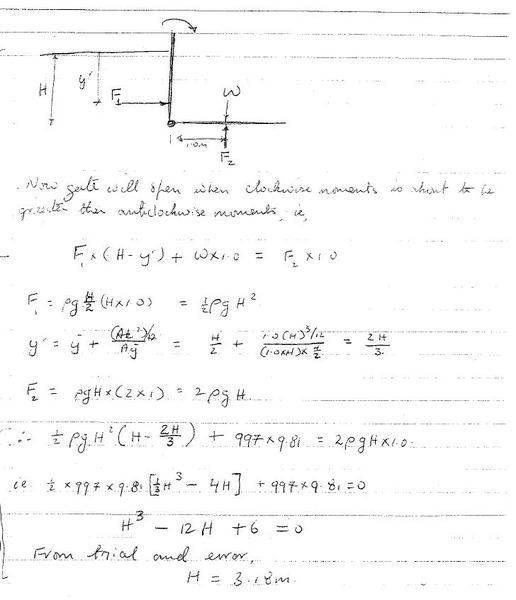 H
y'
F₁
W
1.0m
F₂
Now gate will open when clockwise moments is about to be
greater than anticlockwise moments, ie,
F₁ × (H - y') + W × 1.0 = F₂ × 1.0
F₁ = ρg H/2 (H × 1.0) = ½ρgH²
y' = ȳ + (AL²)/12 / Aȳ = H/2 + 1.0(H)³/12 / (1.0×H)×H/2 = 2H/3.
F₂ = ρgH × (2×1) = 2ρgH
∴ ½ρgH² (H - 2H/3) + 997×9.81 = 2ρgH×1.0.
ie ½ × 997 × 9.81 [⅓H³ - 4H] + 997×9.81 = 0
H³ - 12H + 6 = 0
From trial and error,
H = 3.18m.